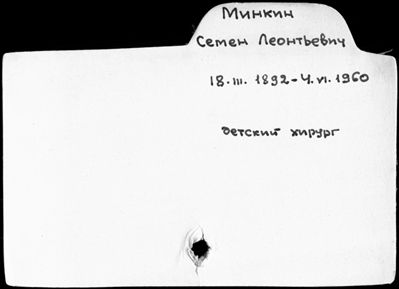 Минкин
Семен Леонтьевич
18.III.1892-4.VI.1960
детский хирург